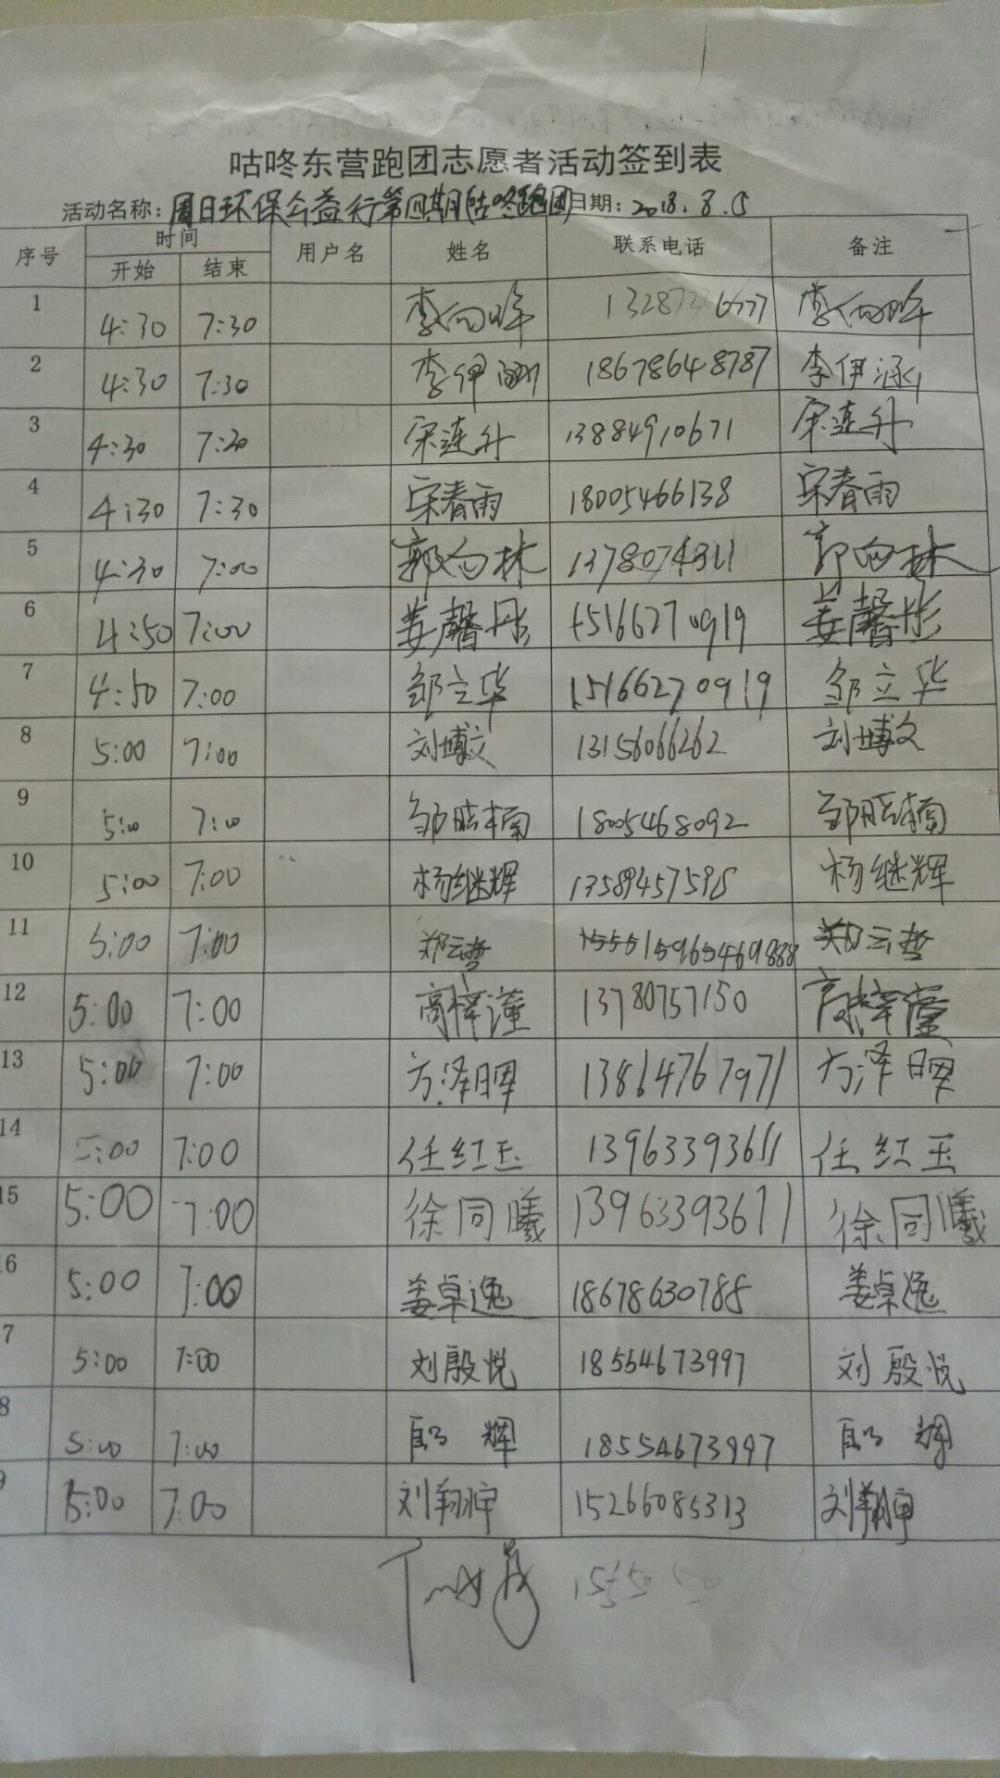 咕咚东营跑团志愿者活动签到表
活动名称：周日环保公益行第四期(咕咚跑团) 日期：2018.8.5
序号 时间 用户名 姓名 联系电话 备注
开始 结束
1 4:30 7:30 李向 李向
2 4:30 7:30 李伊涵 18678648787 李伊涵
3 4:30 7:30 宋连升 13884910671 宋连升
4 4:30 7:30 宋春雨 18005466138 宋春雨
5 4:30 7:00 郭向林 郭向林
6 4:50 7:00 姜馨彤 15166270919 姜馨彤
7 4:50 7:00 邹立华 15166270919 邹立华
8 5:00 7:00 刘博文 13156066262 刘博文
9 5:00 7:00 邹晓楠 18005468092 邹晓楠
10 5:00 7:00 杨继辉 杨继辉
11 5:00 7:00 郑云梦 15965469888 郑云梦
12 5:00 7:00 高梓瑾 13780757150 高梓
13 5:00 7:00 方泽明 13864767971 方泽
14 5:00 7:00 任红玉 13963393611 任红玉
15 5:00 7:00 徐同曦 13963393611 徐同曦
6 5:00 7:00 姜卓逸 18678630788 姜卓逸
7 5:00 7:00 刘殷悦 18554673997 刘殷悦
8 5:00 7:00 辉 18554673997 辉
9 5:00 7:00 刘翔 15266085313 刘翔